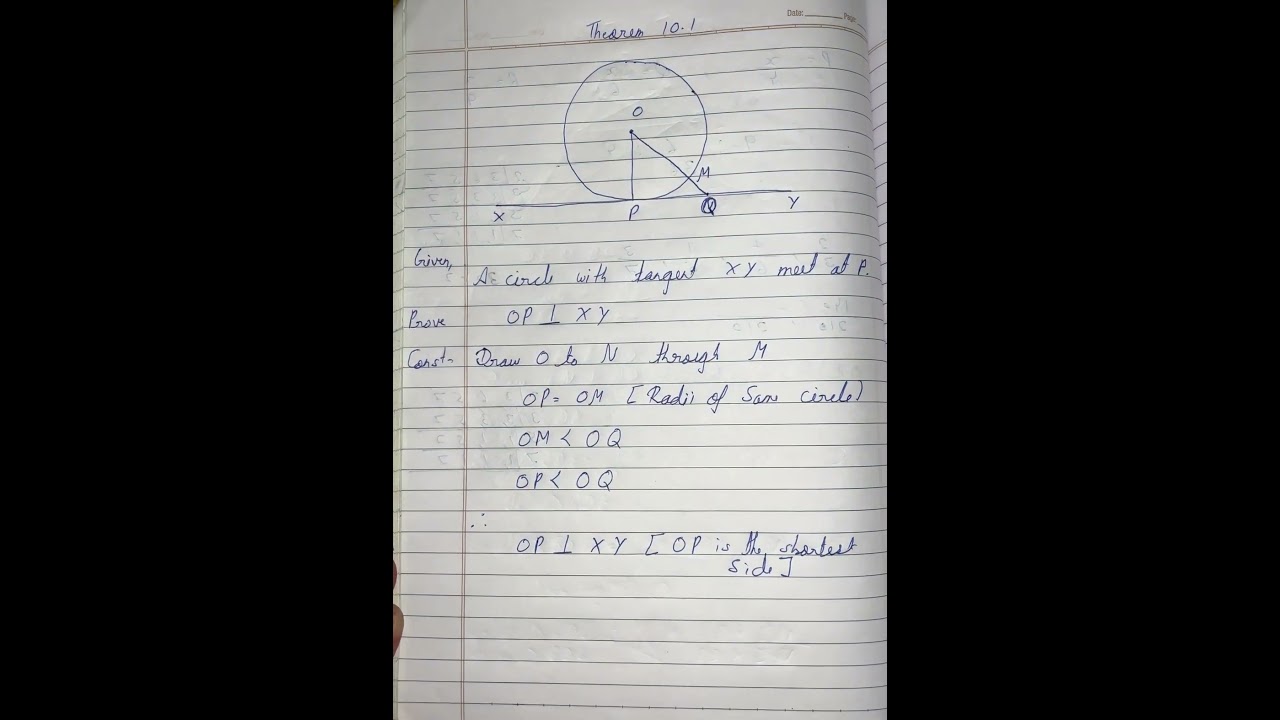 Date: Page:
Theorem 10.1
O
M
X P Q Y
Given,
A circle with tangent XY meet at P.
Prove OP ⊥ XY
Const- Draw O to N through M
OP = OM [Radii of Same circle)
OM < OQ
OP < OQ
∴
OP ⊥ XY [OP is the shortest
side]